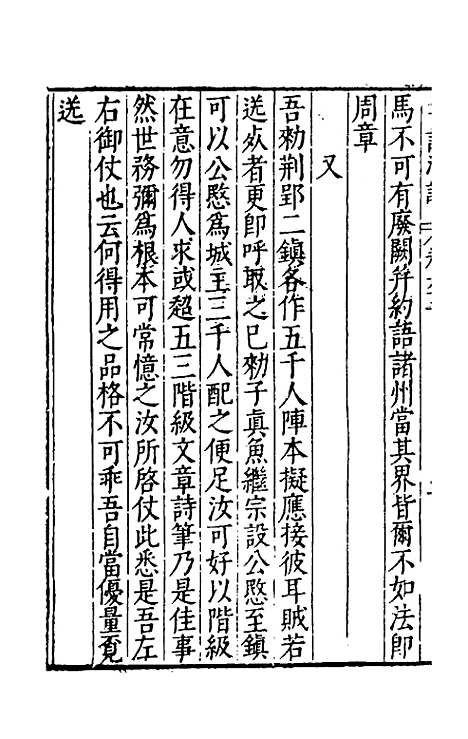 馬不可有廢闕并約語諸州當其界皆爾不如法即
周章
又
吾勑荆郢二鎮各作五千人陣本擬應接彼耳賊若
送死者更即呼取之已勑子真魚繼宗設公愍至鎮
可以公愍爲城主三千人配之便足汝可好以階級
在意勿得人求或超五三階級文章詩筆乃是佳事
然世務彌爲根本可常憶之汝所啓仗此悉是吾左
右御仗也云何得用之品格不可乖吾自當優量覓
送